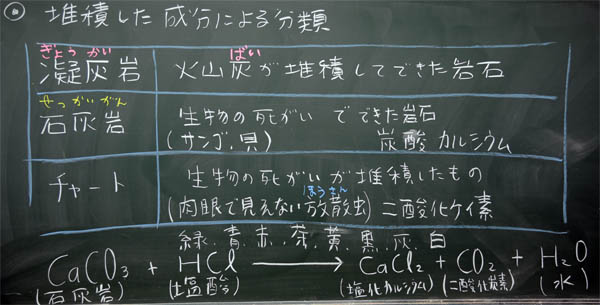 ◎ 堆積した成分による分類
ぎょうかい ばい
凝灰岩 火山灰が堆積してできた岩石
せっかいがん
石灰岩 生物の死がいでできた岩石
(サンゴ、貝) 炭酸カルシウム
チャート 生物の死がいが堆積したもの
ほうさん
(肉眼で見えない放散虫) 二酸化ケイ素
緑、青、赤、茶、黄、黒、灰、白
CaCO3 + HCl → CaCl2 + CO2 + H2O
(石灰岩) (塩酸) (塩化カルシウム) (二酸化炭素) (水)